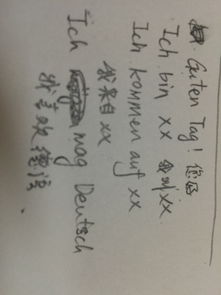 Guten Tag! 您好
Ich bin xx 我叫xx
Ich kommen auf xx
我来自xx
Ich mag Deutsch
我喜欢德语.